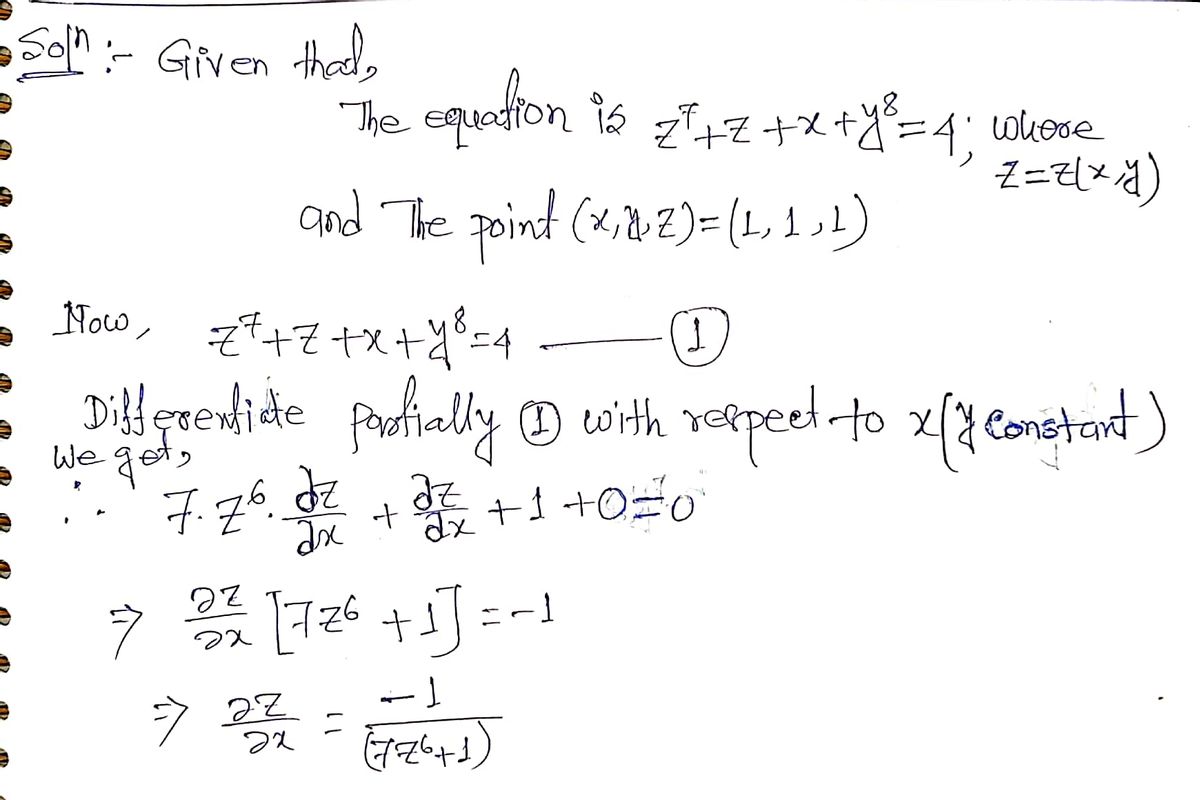 Soln :- Given that,
The equation is z⁷+z+x+y⁸=4; where
z=z(x,y)
and The point (x,y,z)=(1,1,1)
Now, z⁷+z+x+y⁸=4 —— ①
Differentiate partially ① with respect to x(y constant)
We get,
∴ 7.z⁶.∂z/∂x + ∂z/∂x +1+0=0
⇒ ∂z/∂x [7z⁶+1]=-1
⇒ ∂z/∂x = -1/(7z⁶+1)